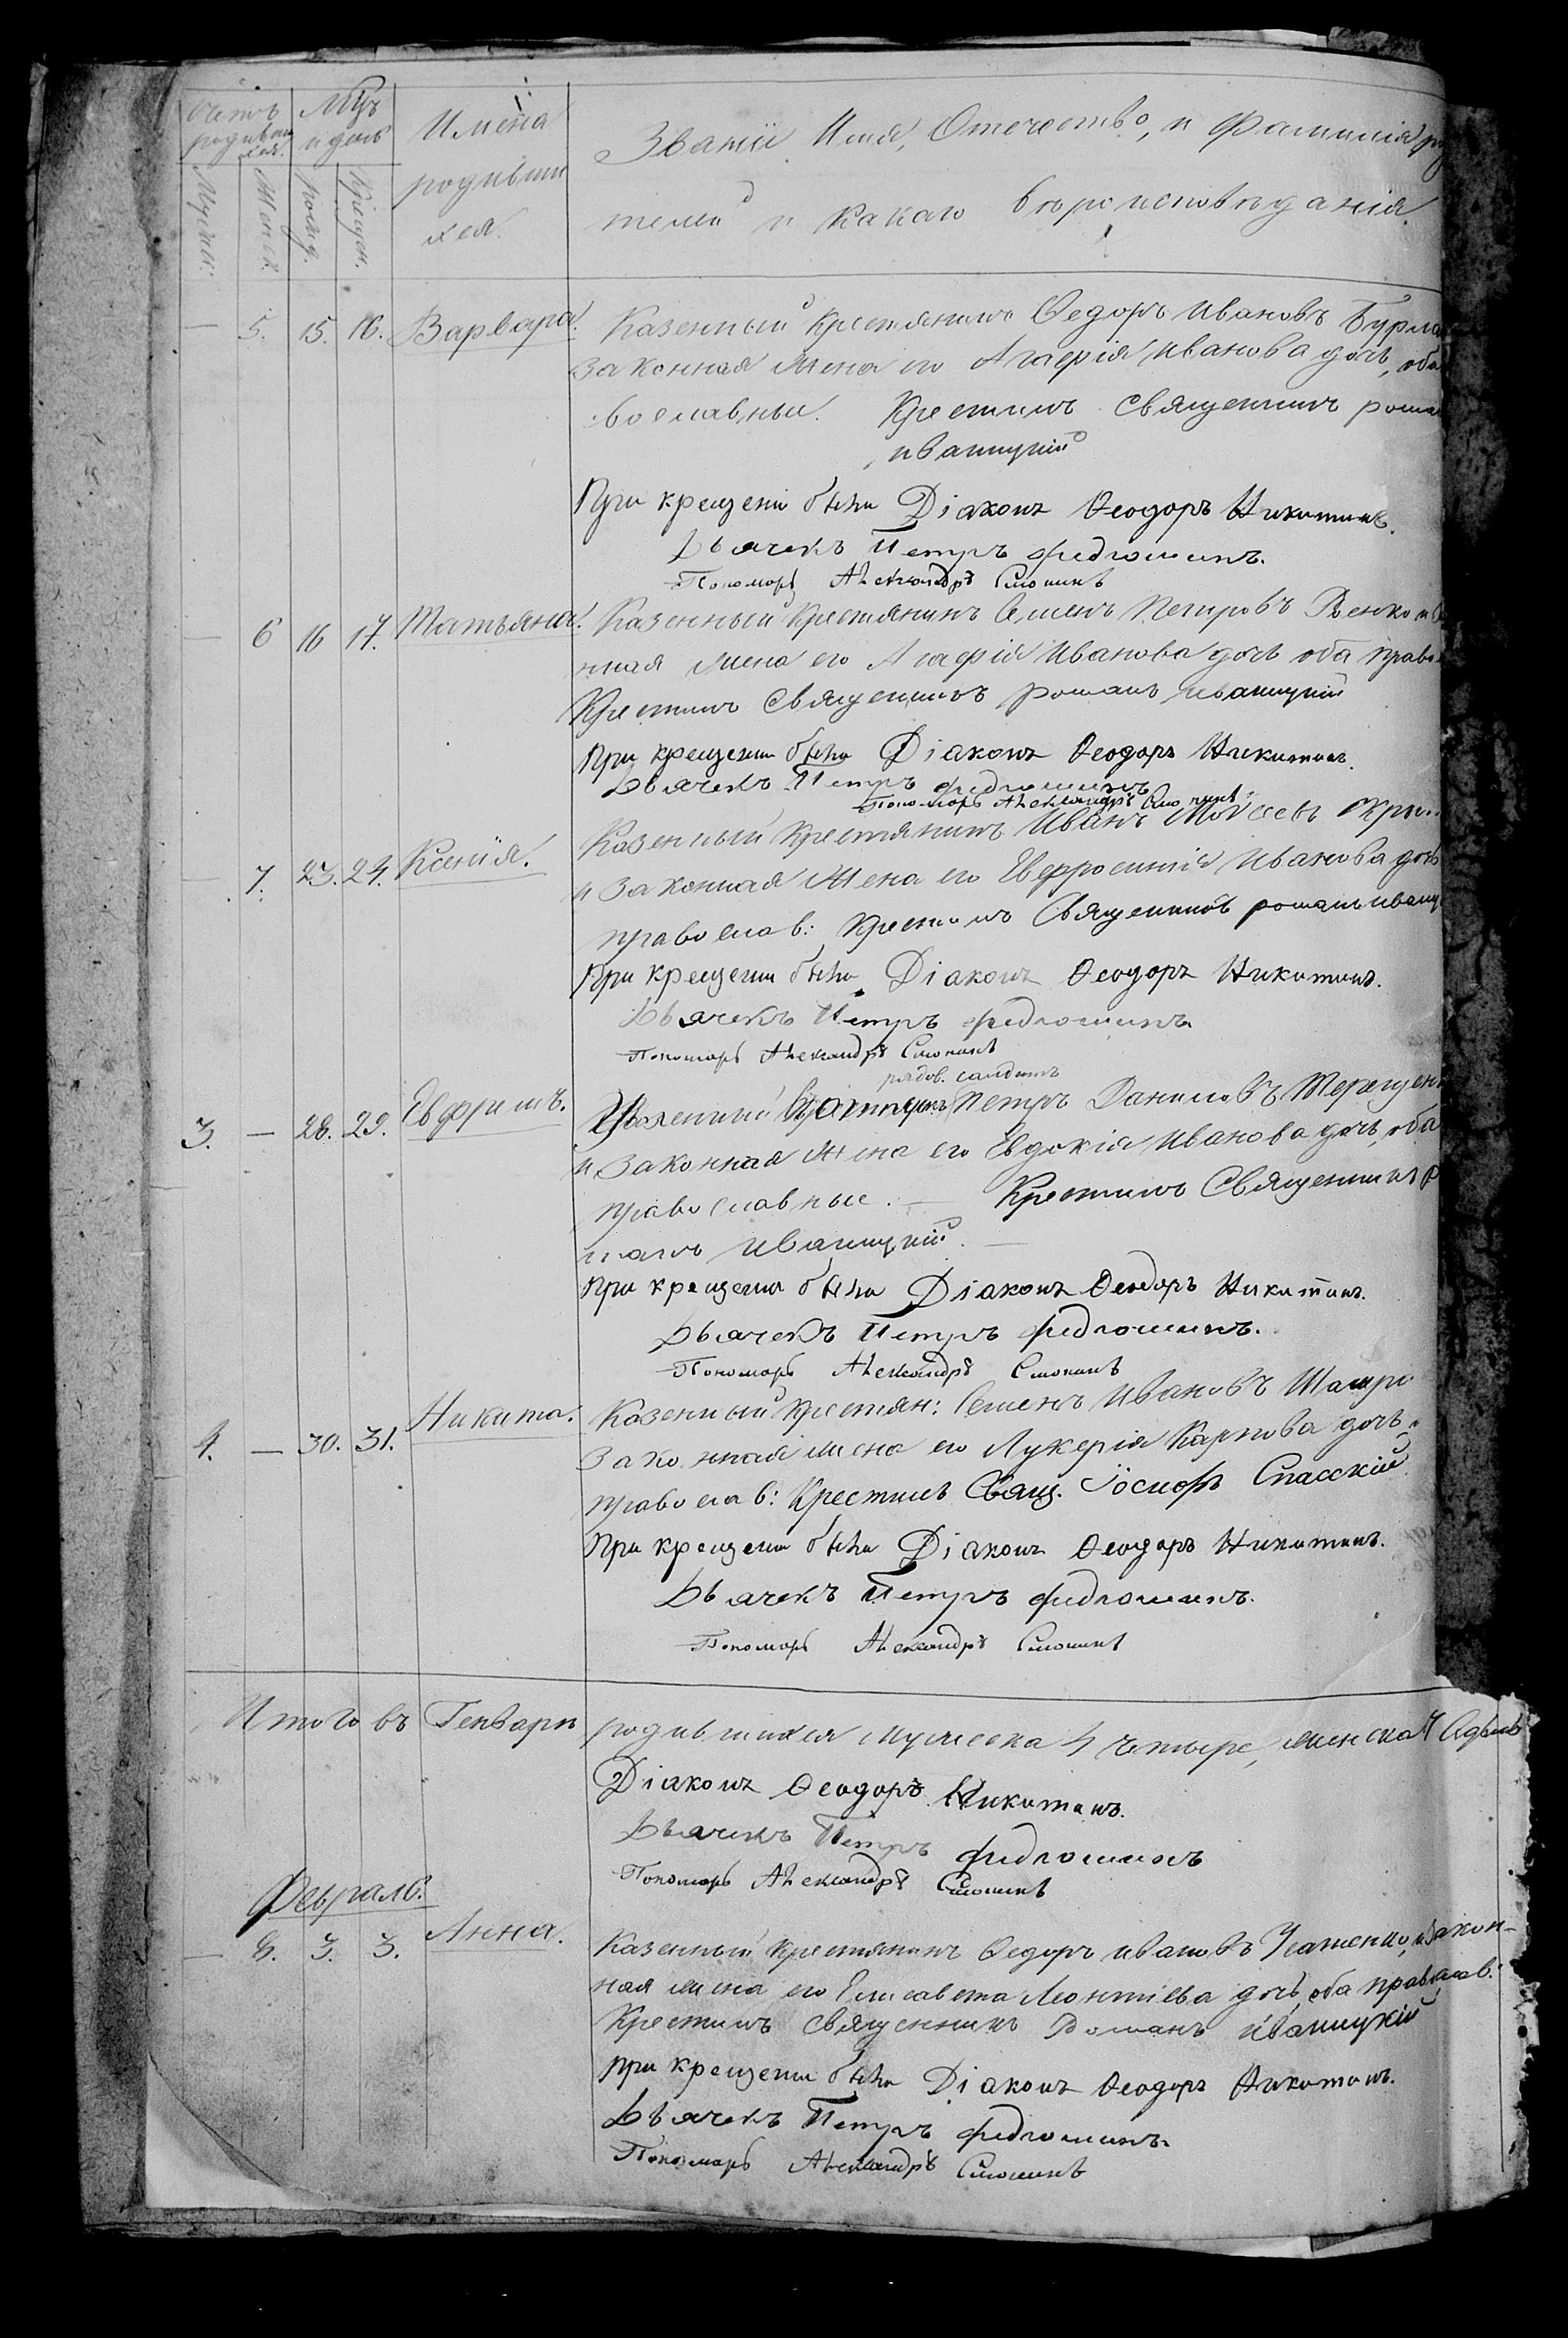 Счетъ родивши хся.
Мцъ и день
Имена родивши хся.
Званіе, Имя, Отечество, и Фамилія ро
телей и какаго вѣроисповѣданія.
Мужес:
Женск.
рожд.
Крещен.
— 5. 15. 16. Варвара. Казенный крестянинъ Ѳедоръ Ивановъ Бурла
законная жена его Агафія Иванова дочь, оба
вославные. Крестилъ Священникъ рома
иваницкій
При крещеніи были Діаконъ Ѳеодоръ Никитинъ.
Дьячекъ Петръ
Пономарь Александръ
— 6 16 17. Татьяна. Казенный крестянинъ Семенъ Петровъ
нная жена его Агафія Иванова дочь оба право
Крестилъ Священникъ романъ иваницкій
При крещеніи были Діаконъ Ѳеодоръ Никитинъ.
Дьячекъ Петръ
Пономарь Александръ
— 7. 23. 24. Ксенія. Казенный крестянинъ Иванъ
и законная жена его Евфросинія Иванова дочь
православ: Крестилъ Священникъ романъ иваниц
При крещеніи были Діаконъ Ѳеодоръ Никитинъ.
Дьячекъ Петръ
Пономарь Александръ
рядов. салдатъ
3. — 28. 29. Евфимъ. Уволенный Петръ Даниловъ Терещен
и законная жена его Евдокія Иванова дочь, оба
православные. — Крестилъ Священникъ Р
манъ иваницкій. —
При крещеніи были Діаконъ Ѳеодоръ Никитинъ.
Дьячекъ Петръ
Пономарь Александръ
4. — 30. 31. Никита. Казенный крестян: Семенъ Ивановъ
законная жена его Лукерія Карпова дочь,
православ: Крестилъ Свящ. Іосифъ Спасскій
При крещеніи были Діаконъ Ѳеодоръ Никитинъ.
Дьячекъ Петръ
Пономарь Александръ
Итого въ Генварѣ родившихся мужеска 4 четыре, женска 7
Діаконъ Ѳеодоръ Никитинъ.
Дьячекъ Петръ
Пономарь Александръ
Февраль.
— 8. 3. 3. Анна. Казенный крестянинъ Ѳедоръ ивановъ и закон-
ная жена его Елисавета Леонтіева дочь, оба православ:
Крестилъ священникъ Романъ иваницкій
При крещеніи были Діаконъ Ѳеодоръ Никитинъ.
Дьячекъ Петръ
Пономарь Александръ